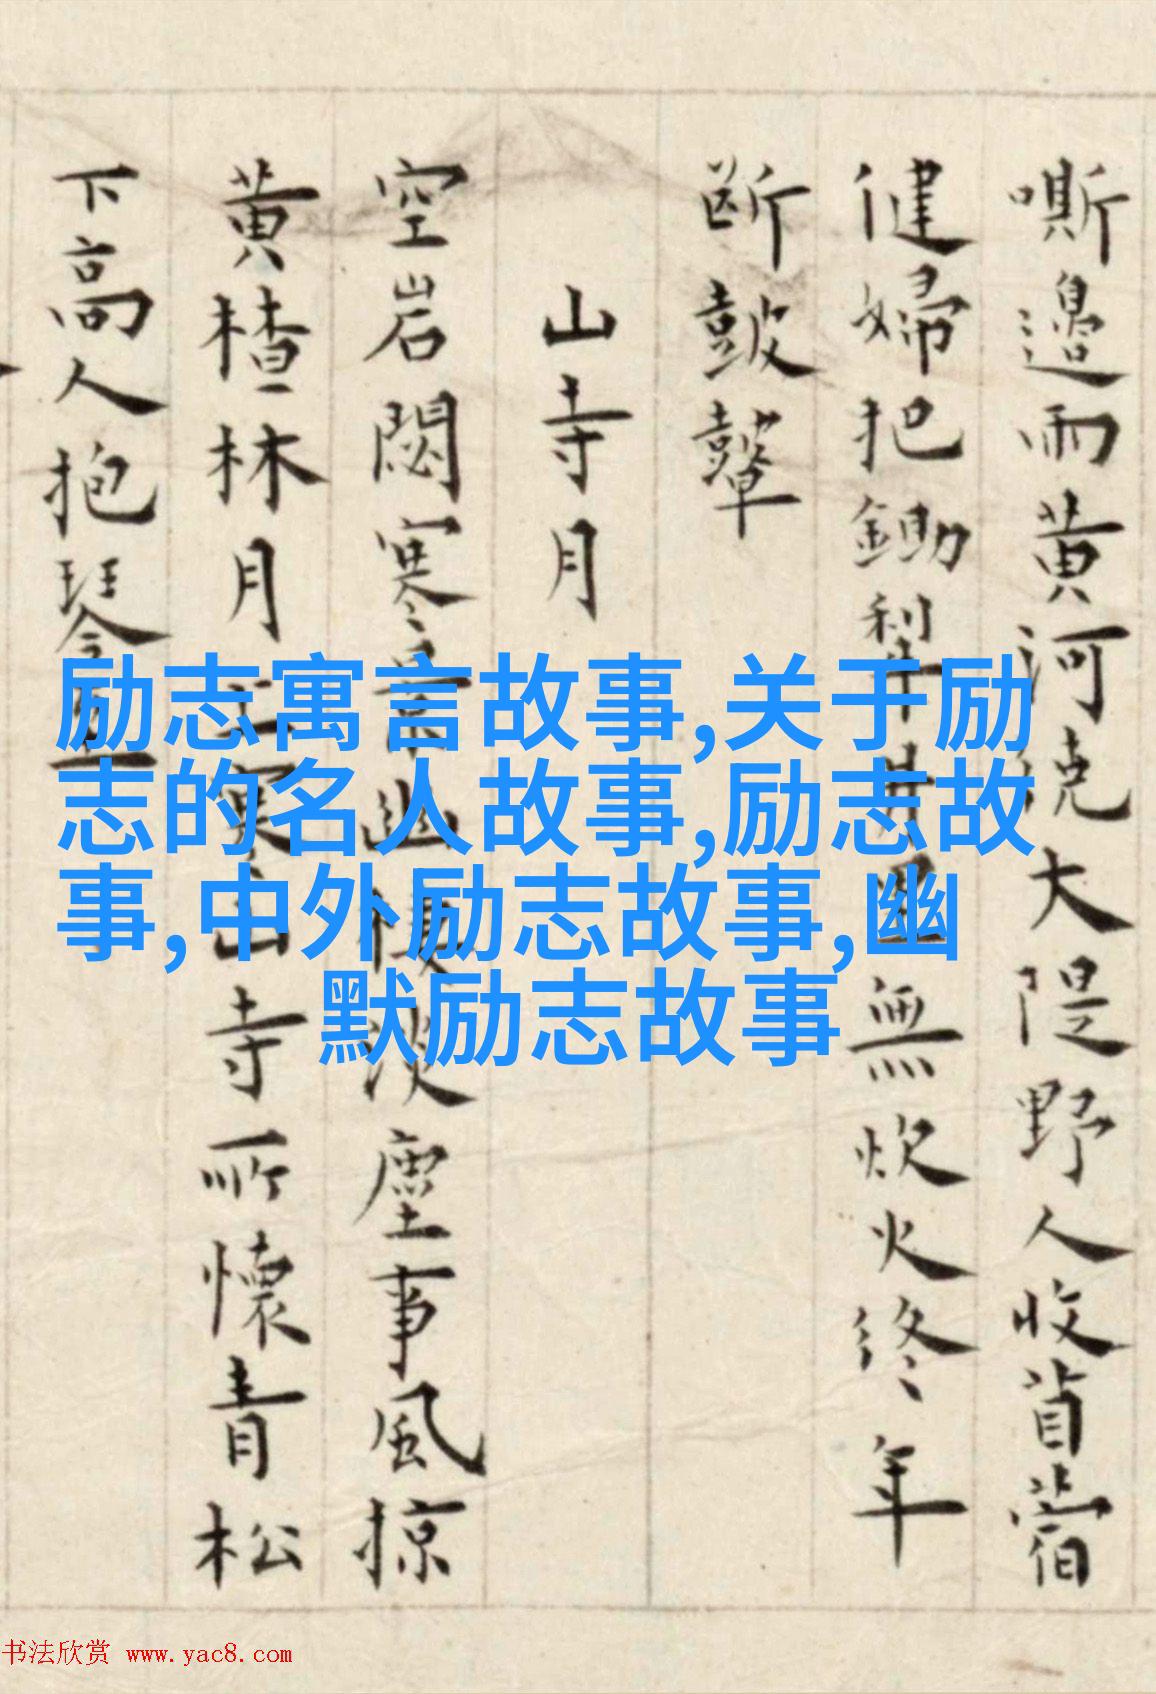 嘶邊雨黄河大隄野人收苜蓿
健婦把鋤犁井無炊火終年
斷皷鼙
山寺月
空岩閟寒景幽棲淡塵事風掠
黄樝林月上東山寺所懷青松
下高人抱琴至
励志寓言故事,关于励
志的名人故事,励志故
事,中外励志故事,幽
默励志故事
书法欣赏 www.yac8.com